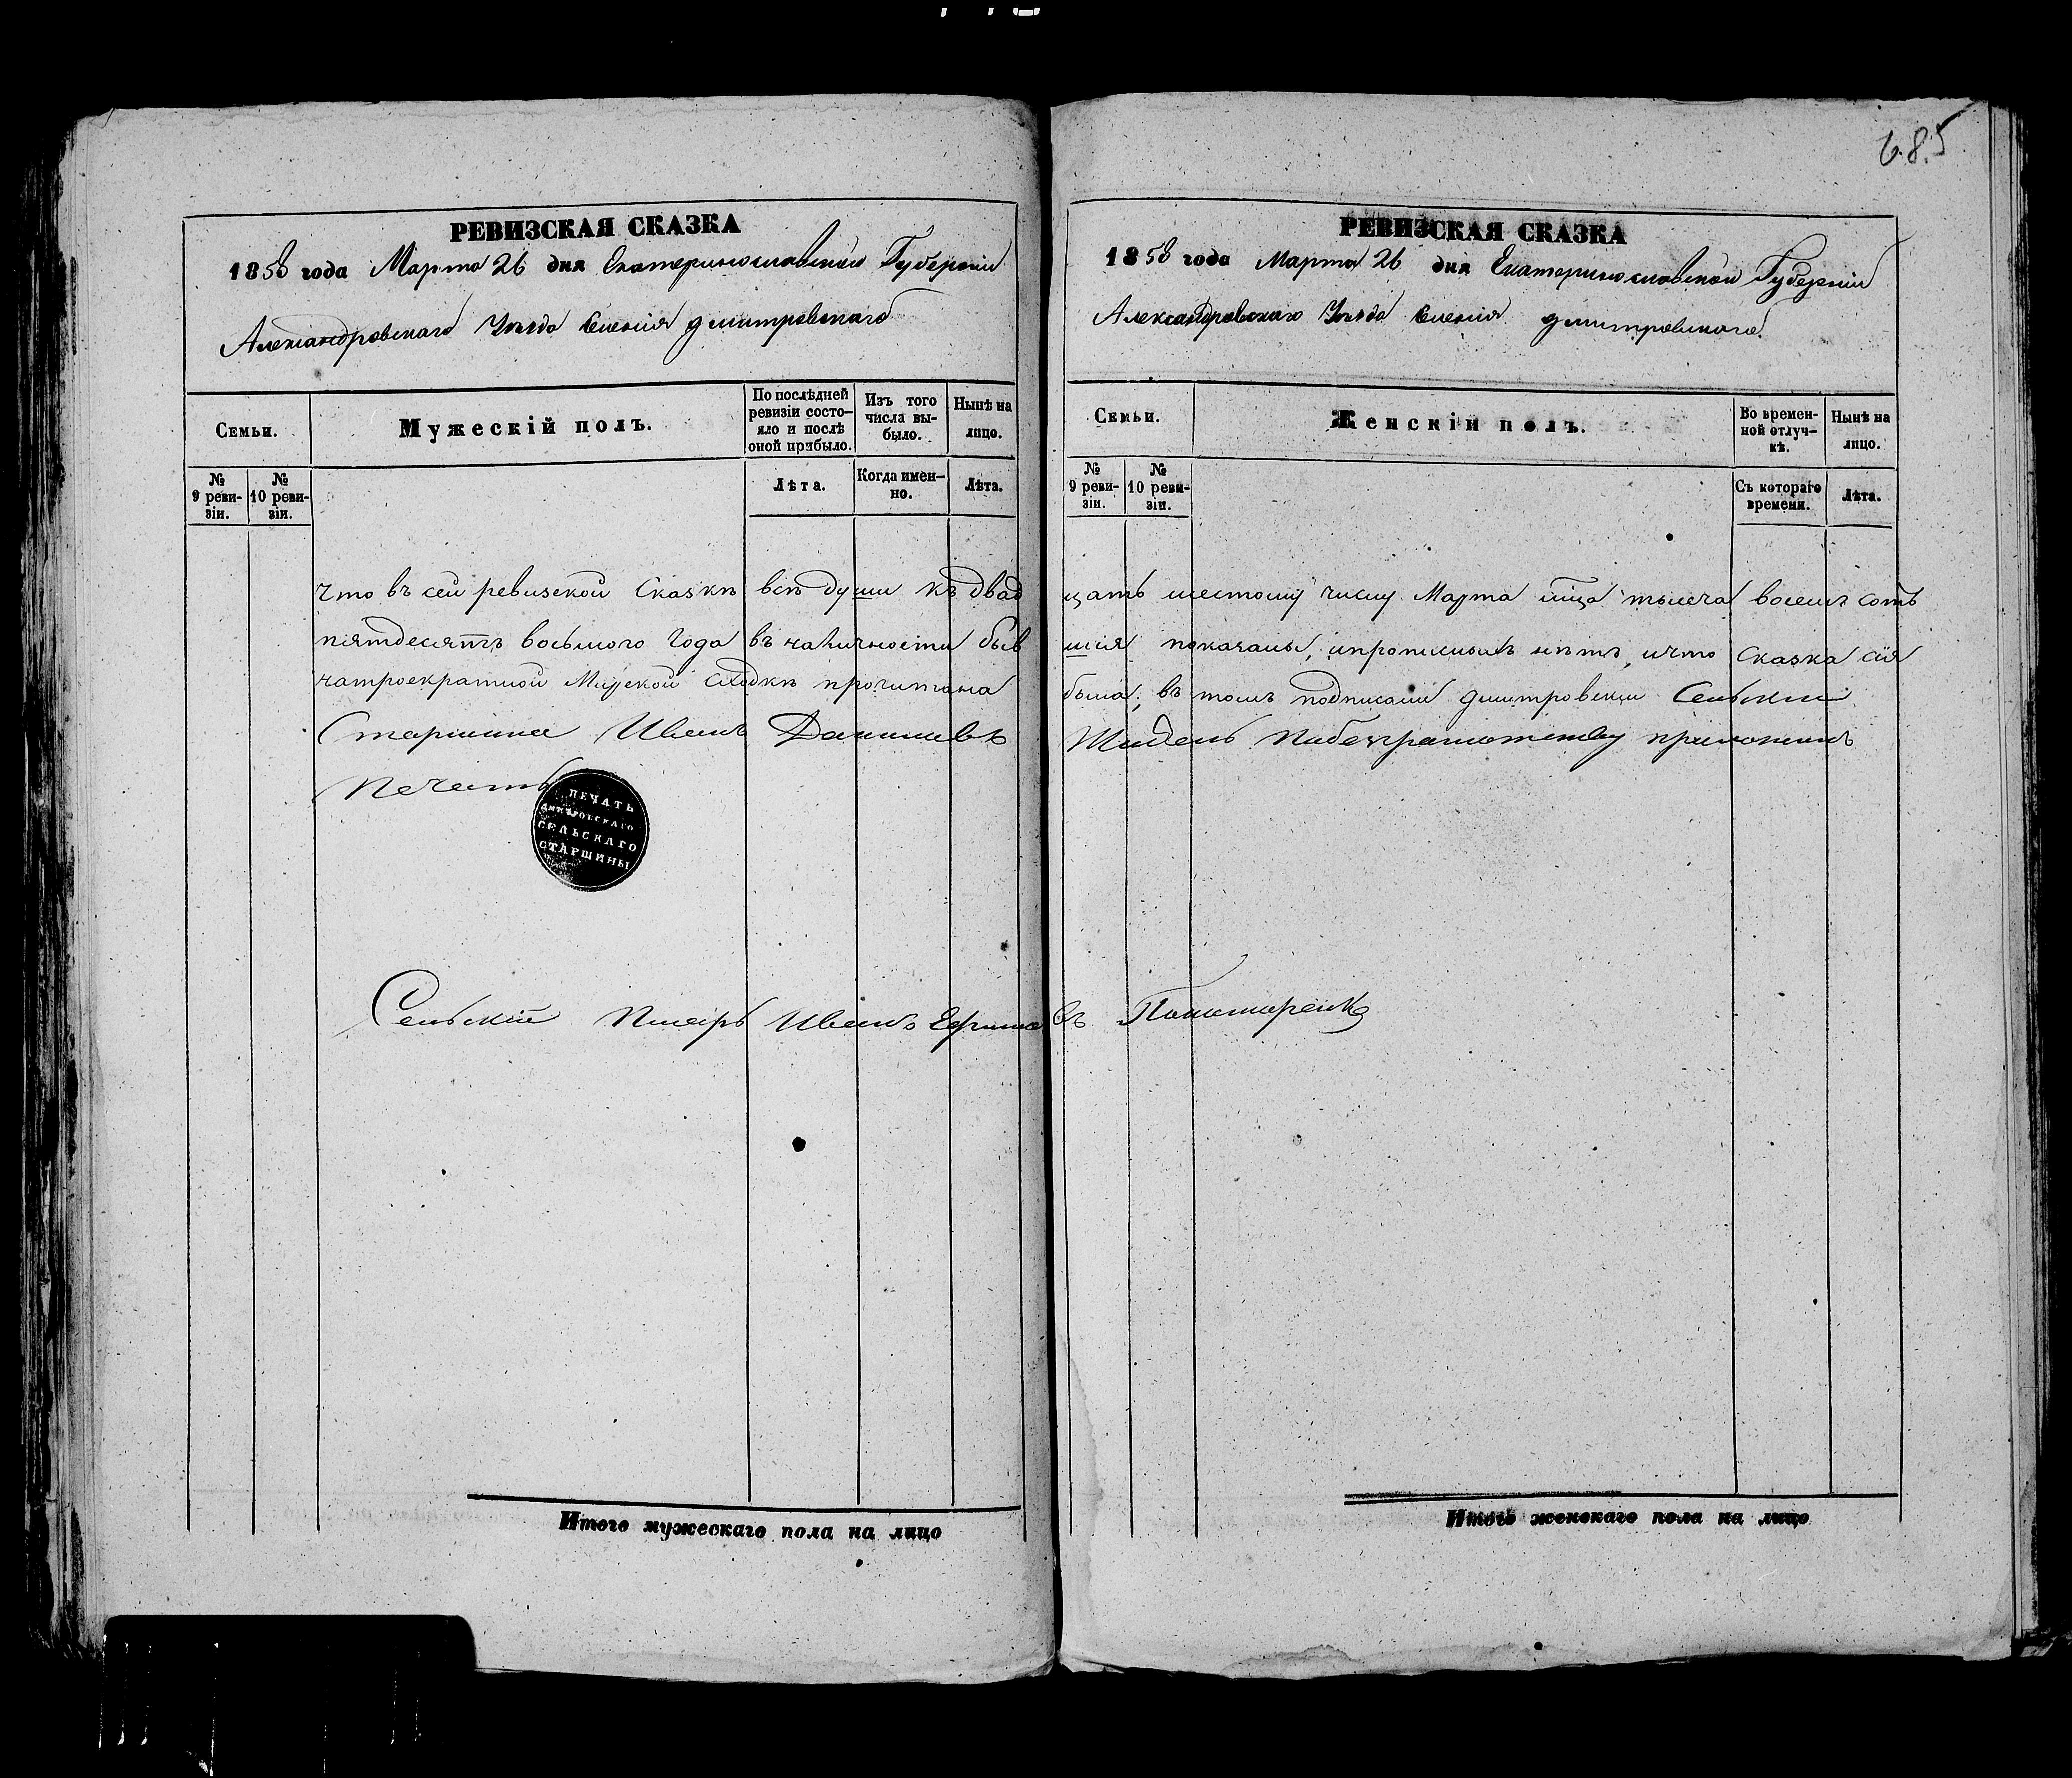 685
РЕВИЗСКАЯ СКАЗКА
1858 года Марта 26 дня Екатеринославской Губерніи
Александровскаго Уезда Селенія Дмитровскаго
Семьи.
Мужескій полъ.
По послѣдней ревизіи состояло и послѣ оной прибыло.
Изъ того числа выбыло.
Нынѣ на лицо.
№ 9 ревизіи.
№ 10 ревизіи.
Лѣта.
Когда именно.
Лѣта.
что въ сей ревизской Сказкѣ всѣ души къ двад
пятдесятъ восьмого Года въ наличности быв
натроекратной Мирской Сходкѣ прочитана
Старшина Иванъ Даниловъ
Печать
ПЕЧАТЬ
ДМИТРОВСКАГО
СЕЛЬСКАГО
СТАРШИНЫ
Сельскій Писарь Иванъ Ефимо
Итого мужескаго пола на лицо
РЕВИЗСКАЯ СКАЗКА
1858 года Марта 26 дня Екатеринославской Губерніи
Александровскаго Уезда Селенія Дмитровскаго.
Семьи.
Женскій полъ.
Во временной отлучкѣ.
Нынѣ на лицо.
№ 9 ревизіи.
№ 10 ревизіи.
Съ котораго времени.
Лѣта.
цать шестому числу Марта мца тысеча восемъ сотъ
шія показаны, ипрописныхъ нѣтъ, ичто Сказка сія
была, въ томъ подписали Дмитровскій Сельскій
Побезграмотству приложилъ
въ Пономаренко
Итого женскаго пола на лицо